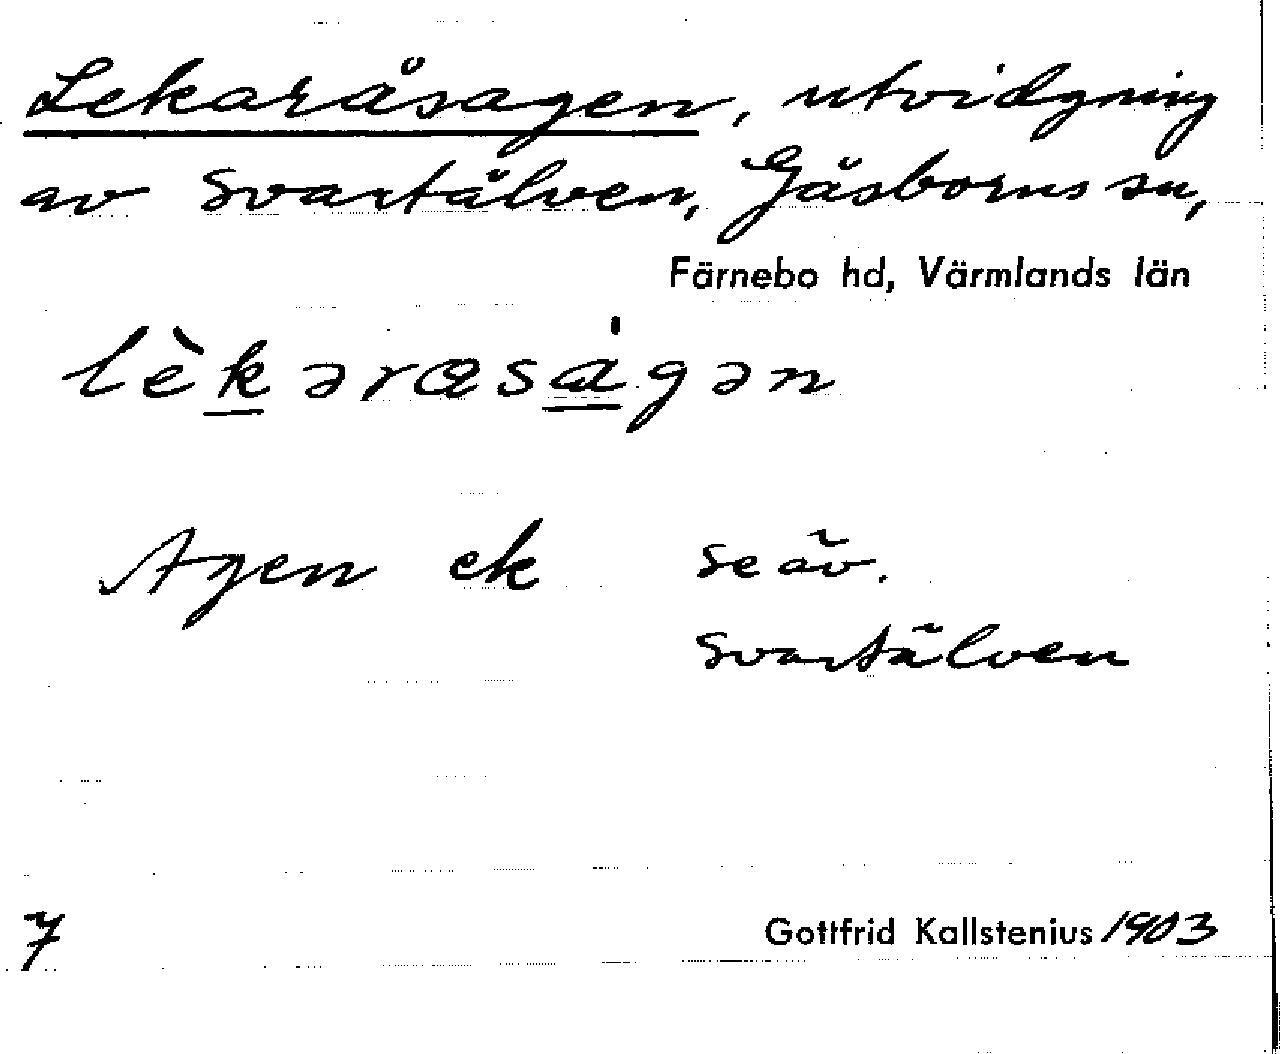 Lekaråsagen, utvidgning
av Svartälven, Gåsborns sn,
Färnebo hd, Värmlands län
lèkəraságən
Agen ek se äv.
Svartälven
7 Gottfrid Kallstenius 1903